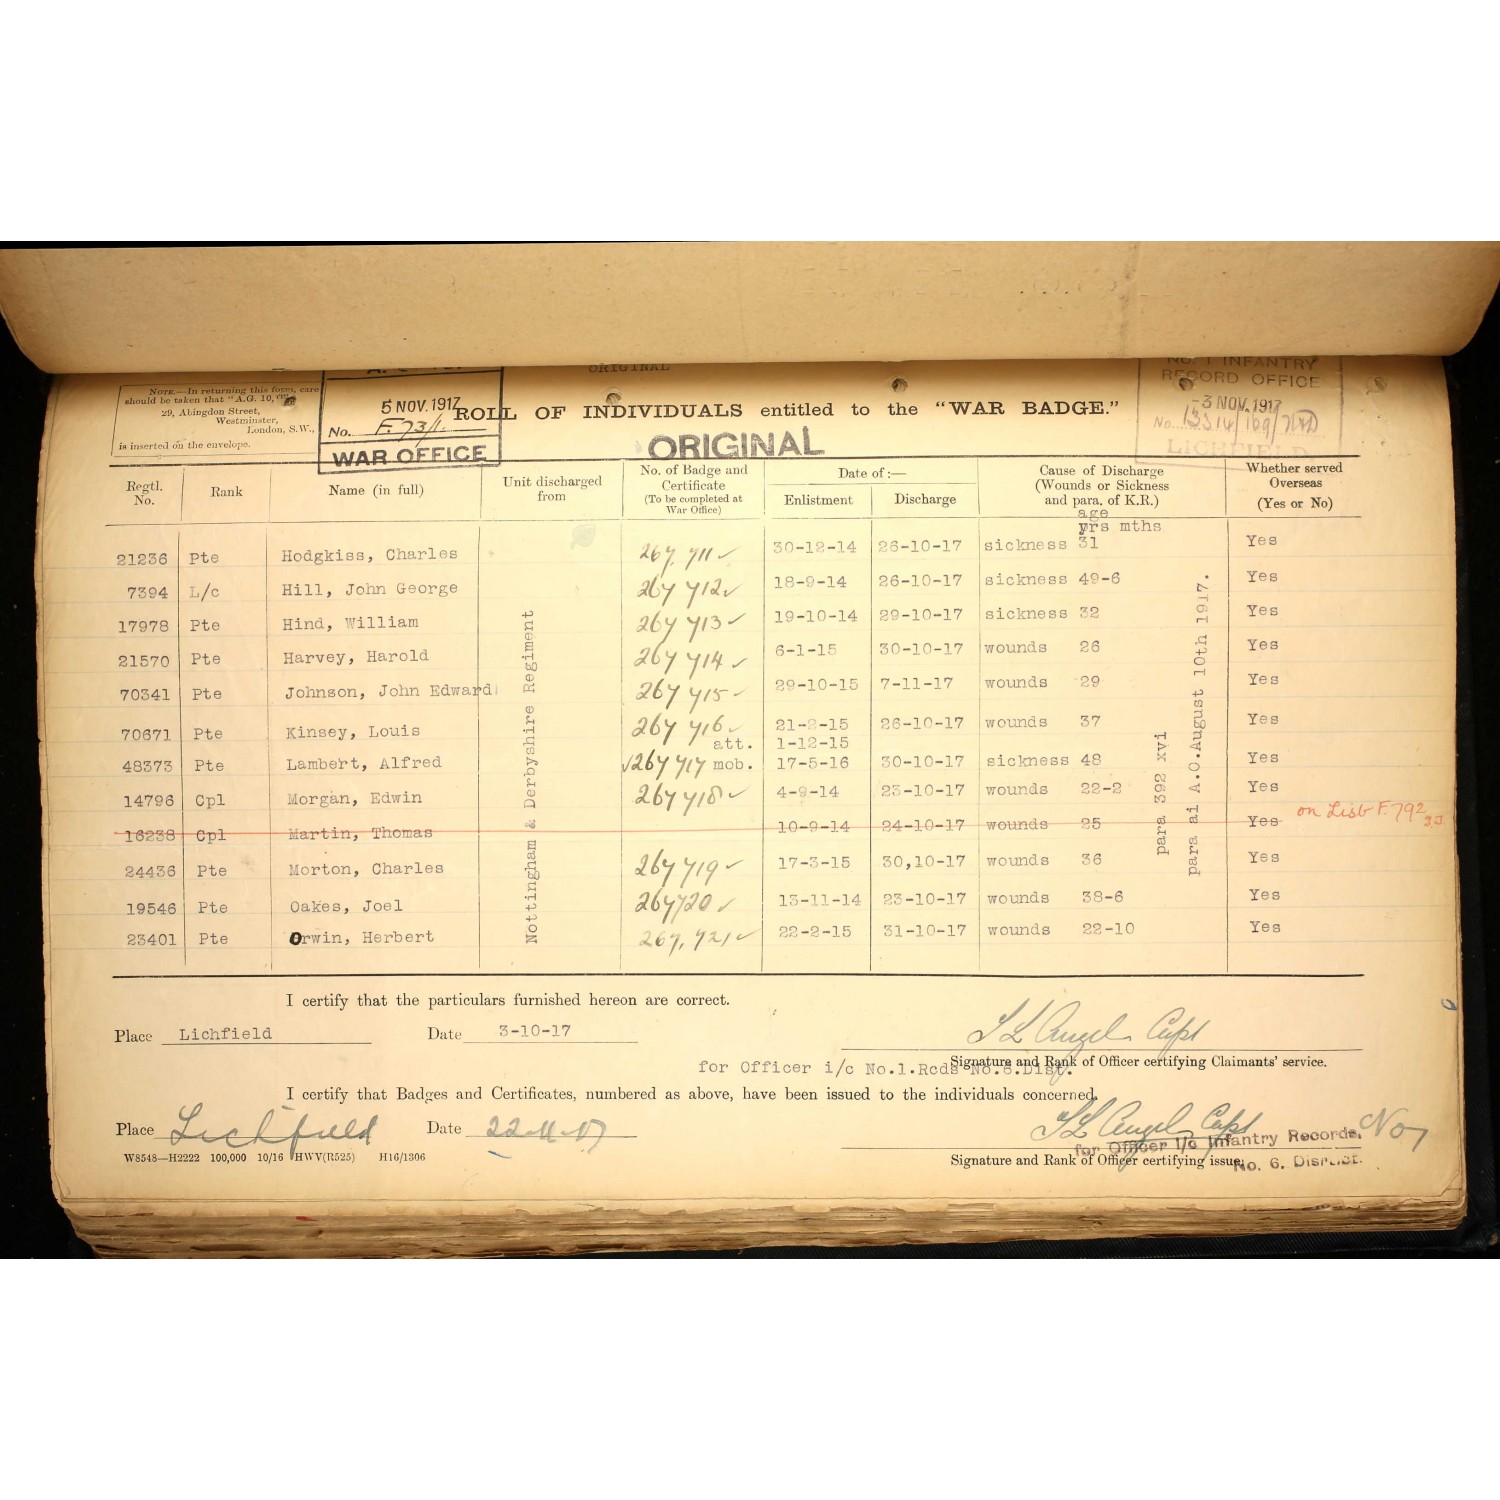 ORIGINAL
NOTE.—In returning this form, care
should be taken that "A.G. 10,"
29, Abingdon Street,
Westminster,
London, S.W.,
is inserted on the envelope.
5 NOV. 1917
No. F.73/1.
WAR OFFICE
ROLL OF INDIVIDUALS entitled to the "WAR BADGE."
ORIGINAL
No. 1 INFANTRY
RECORD OFFICE
-3 NOV. 1917
No.
LICHFIELD.
Regtl. No. Rank Name (in full) Unit discharged from No. of Badge and Certificate (To be completed at War Office) Date of :— Enlistment Discharge Cause of Discharge (Wounds or Sickness and para. of K.R.) Whether served Overseas (Yes or No)
age
yrs mths
21236 Pte Hodgkiss, Charles 267,711 ✓ 30-12-14 26-10-17 sickness 31 Yes
7394 L/c Hill, John George 267 712 ✓ 18-9-14 26-10-17 sickness 49-6 Yes
17978 Pte Hind, William 267 713 ✓ 19-10-14 29-10-17 sickness 32 Yes
21570 Pte Harvey, Harold 267 714 ✓ 6-1-15 30-10-17 wounds 26 Yes
70341 Pte Johnson, John Edward 267 715 ✓ 29-10-15 7-11-17 wounds 29 Yes
70671 Pte Kinsey, Louis 267 716 ✓ 21-2-15 26-10-17 wounds 37 Yes
att. 1-12-15
48373 Pte Lambert, Alfred √267 717 mob. 17-5-16 30-10-17 sickness 48 Yes
14796 Cpl Morgan, Edwin 267 718 ✓ 4-9-14 23-10-17 wounds 22-2 Yes
16238 Cpl Martin, Thomas 10-9-14 24-10-17 wounds 25 Yes on List F.792
24436 Pte Morton, Charles 267 719 ✓ 17-3-15 30,10-17 wounds 36 Yes
19546 Pte Oakes, Joel 267720 ✓ 13-11-14 23-10-17 wounds 38-6 Yes
23401 Pte Orwin, Herbert 267,721 ✓ 22-2-15 31-10-17 wounds 22-10 Yes
Nottingham & Derbyshire Regiment
para 392 xvi
para ai A.O.August 10th 1917.
I certify that the particulars furnished hereon are correct.
Place Lichfield Date 3-10-17
Capt
Signature and Rank of Officer certifying Claimants' service.
for Officer i/c No.1.Rcds No.6.Dist.
I certify that Badges and Certificates, numbered as above, have been issued to the individuals concerned.
Place Lichfield Date 22-11-17
Capt
for Officer i/c Infantry Records.
Signature and Rank of Officer certifying issue.
No. 6. District.
W8548—H2222 100,000 10/16 HWV(R525) H16/1306